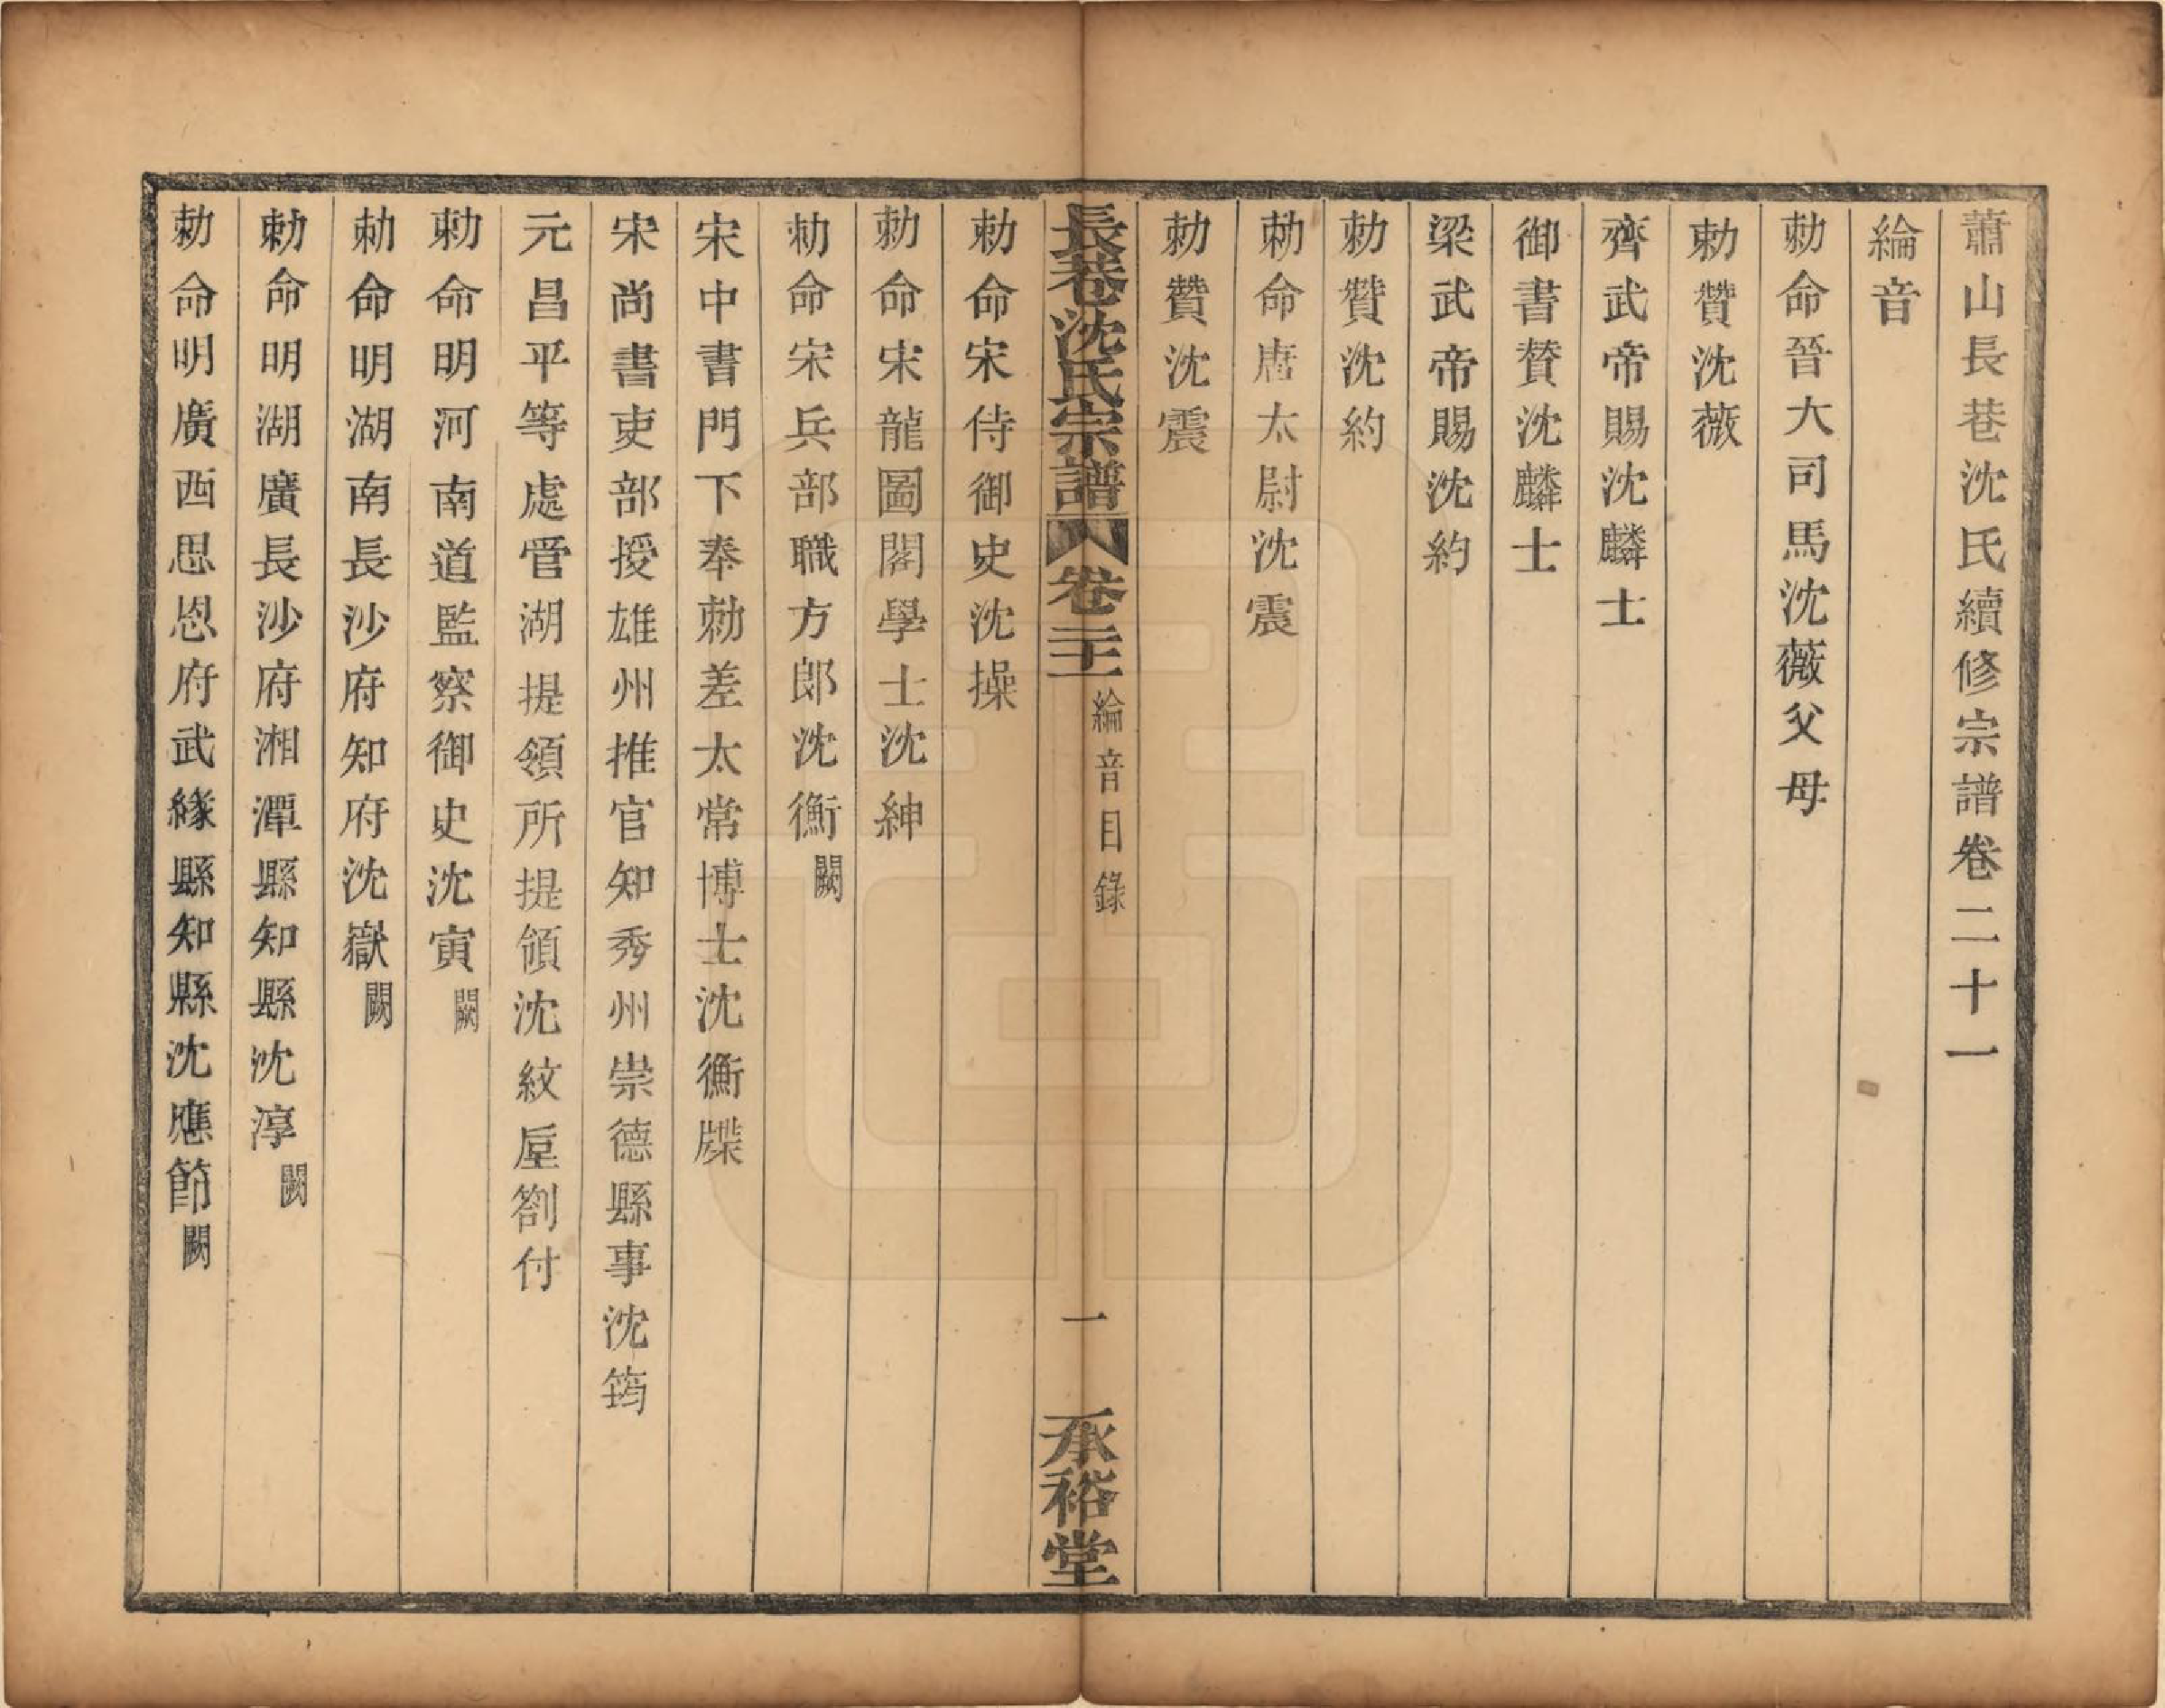 蕭山長巷沈氏續修宗譜卷二十一
綸音
勅命晉大司馬沈薇父母
勅贊沈薇
齊武帝賜沈麟士
御書賛沈麟士
梁武帝賜沈約
勅贊沈約
勅命唐太尉沈震
勅贊沈震
長巷沈氏宗譜 卷二十一 綸音目錄 一 承裕堂
勅命宋侍御史沈操
勅命宋龍圖閣學士沈紳
勅命宋兵部職方郎沈衡闕
宋中書門下奉勅差太常博士沈衡牒
宋尚書吏部授雄州推官知秀州崇德縣事沈筠
元昌平等處管湖提領所提領沈紋屋劄付
勅命明河南道監察御史沈寅闕
勅命明湖南長沙府知府沈嶽闕
勅命明湖廣長沙府湘潭縣知縣沈淳闕
勅命明廣西思恩府武緣縣知縣沈應節闕